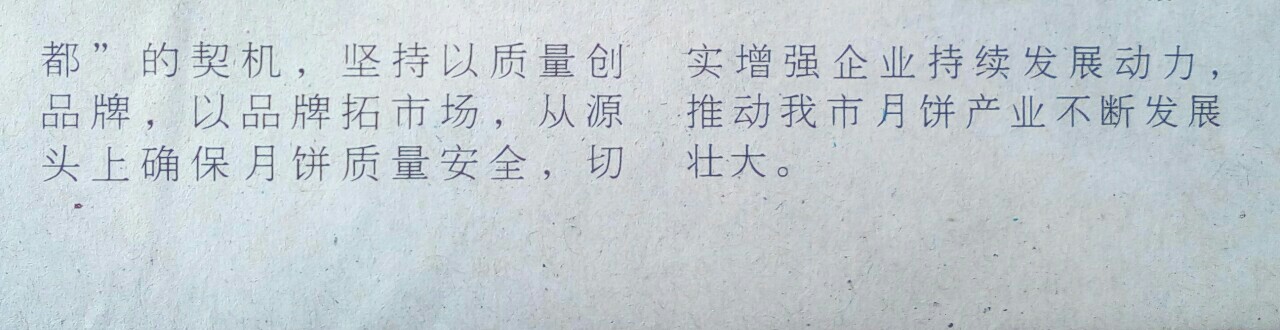 都”的契机，坚持以质量创
品牌，以品牌拓市场，从源
头上确保月饼质量安全，切
实增强企业持续发展动力，
推动我市月饼产业不断发展
壮大。